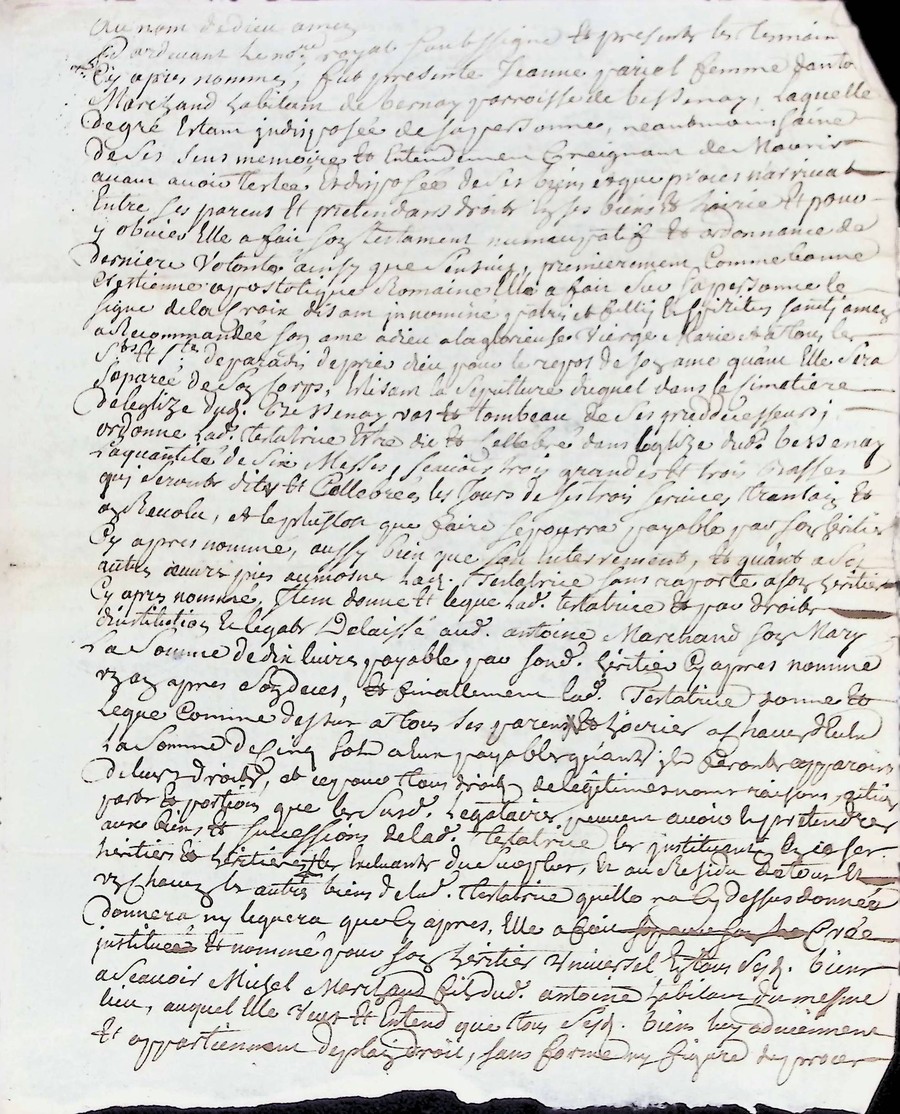 Au nom de dieu amen
Pardevant le no.re royal soubsigné et presents les temoin
Cy apres nommez, fut presente Jeanne pariol femme d'anto
Marchand habitant de bernay parroisse de bessenay, Laquelle
degré Estant jndisposée de sa personne, neantmoins saine
de ses sens memoire Et Entendement Creignant de Mourir
avant avoir testée Et disposée de ses biens et que proces n'arrivat
Entre ses parens Et pretendans droits Ez ses biens Et hoirie Et pour
y obvier Elle a fait son testament nuncupatif Et ordonnance de
derniere Volonté ainsy que sensuit, premierement Comme bonne
Crestienne apostolique Romaine Elle a fait sur sa personne le
signe de la Croix disant jn nomine patris et fillij Et spiritus santj amen
a Recommandée son ame a dieu a la glorieuse Vierge Marie et a tous les
S.ts Et S.tes de paradis de prier dieu pour le repos de son ame quant Elle sera
separée de son Corps, Elisant la sepulture duquel dans le Simetiere
de leglize dud. bessenay vas Et tombeau de ses predecesseurs;
ordonne lad. testatrice Etre dit Et Cellebré dans leglize dud. bessenay
la quantité de Six Messes, scavoir trois grandes Et trois basses
qui seront dites Et Cellebrées les Jours de ses trois services trantain Et
an Revolu, et le plustot que faire se pourra payable par son heritier
Cy apres nommé, aussy bien que son Enterrement, Et quant a Ses
autres œuvres pies aumosnes Lad. Testatrice sans raporte a son heritier
Cy apres nommé, Jtem donne Et legue lad. testatrice Et par droits
d'institution Et legats Delaissé aud. antoine Marchand son Mary
La Somme de dix livres payable par sond. heritier Cy apres nommé
un an apres Son deces, Et finallement lad. Testatrice donne Et
legue Comme dessus a tous ses parens Et hoirier a chacun d'Eux
La Somme de Cinq Sols a lun payable quant ils feront apparoir
de leurs droits, et ce pour tous droits de legitimes noms raisons actions
parts Et portions que les Susd. legataires peuvent avoir Et pretendre
aux biens Et successions de lad. testatrice les jnstituant En ce ses
heritiers Et les Excluants du surplus, Et au Residu de tous Et
un Chacun les autres biens de lad. testatrice quelle na Cy dessus donnée
donnera ny leguera que Cy apres, Elle a fait Créé
jnstitué Et nommé pour son heritier Universel En tous Sesd. biens
a Scavoir Michel Marchand fils dud. antoine habitant du mesme
lieu, auquel Elle Veut Et Entend que tous Sesd. biens luy adviennent
Et appartiennent de plain droit, sans forme ny figure de proces